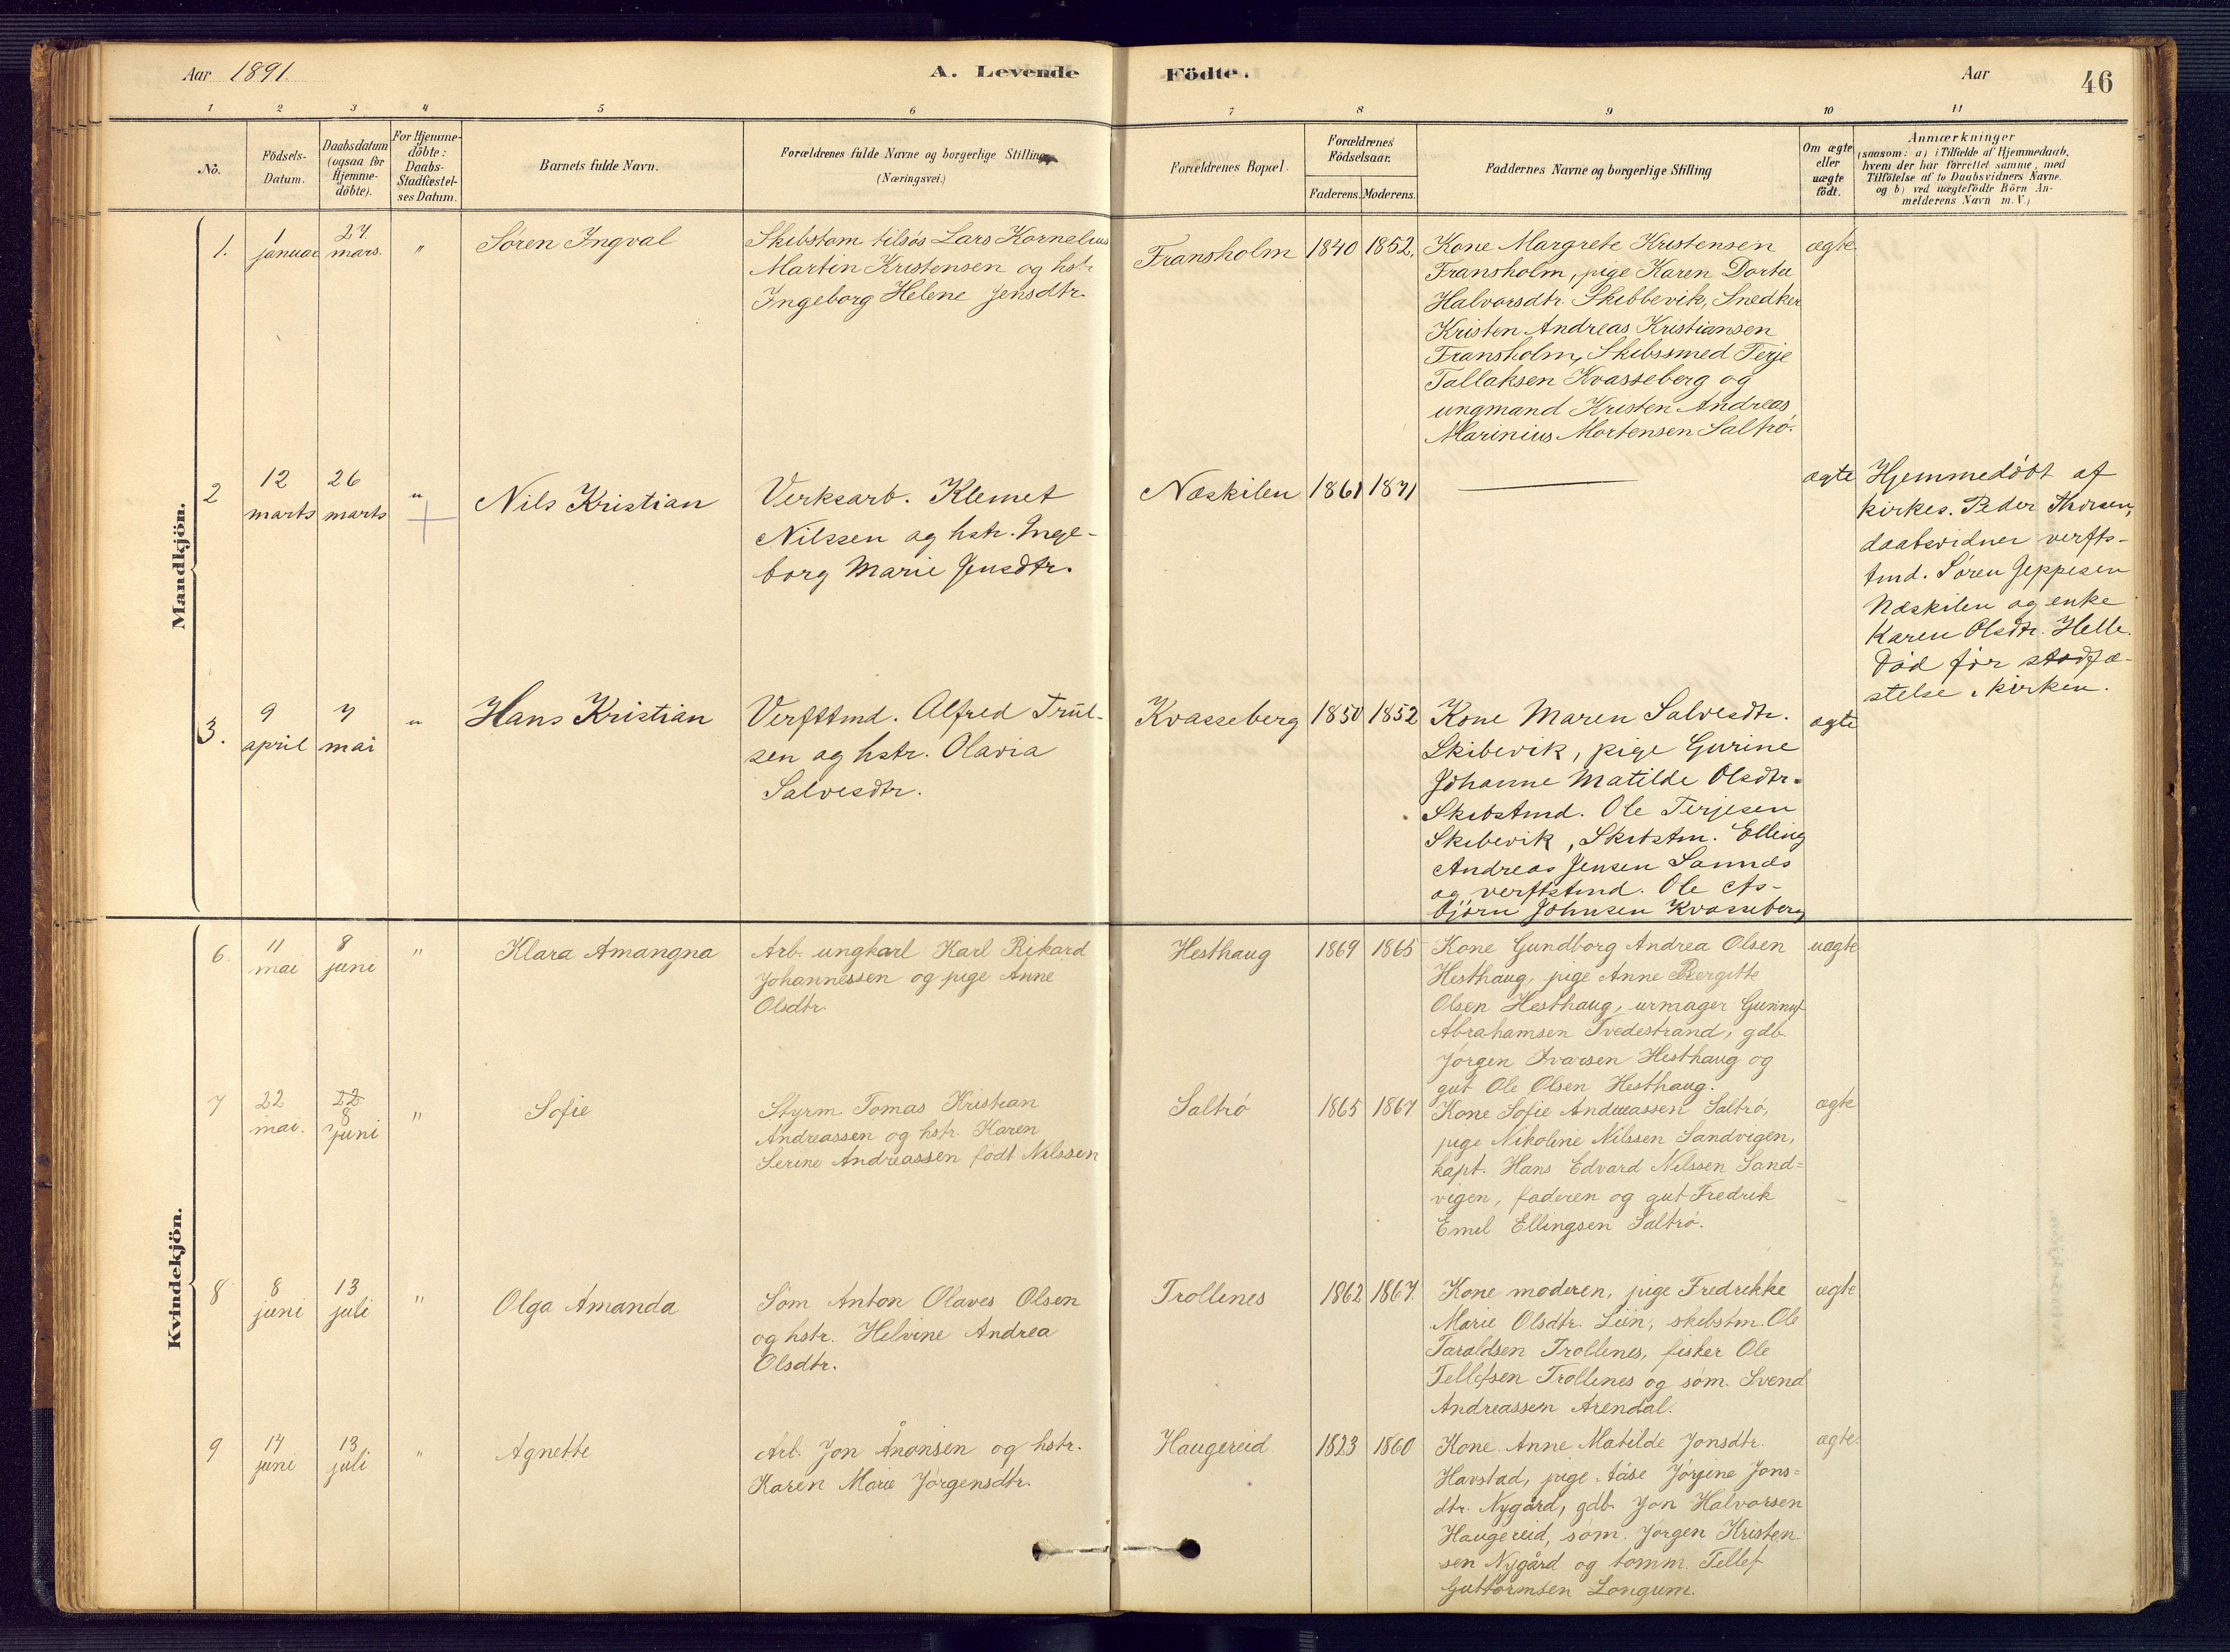 Aar 1891.
A. Levende Födte.
Aar
46
1 2 3 4 5 6 7 8 9 10 11
No.
Födsels-
Datum.
Daabsdatum
(ogsaa for
Hjemme-
döbte).
For Hjemme-
döbte:
Daabs-
Stadfæstel-
ses Datum.
Barnets fulde Navn.
Forældrenes fulde Navne og borgerlige Stilling
(Næringsvei.)
Forældrenes Bopæl.
Forældrenes
Födselsaar.
Faderens. Moderens.
Faddernes Navne og borgerlige Stilling
Om ægte
eller
uægte
födt.
Anmærkninger
(saasom: a) i Tilfælde af Hjemmedaab,
hvem der har forrettet samme, med
Tilföielse af to Daabsvidners Navne.
og b) ved uægtefödte Börn An-
melderens Navn m.V.)
Mandkjön.
1.
1
januar
27
mars.
"
Søren Ingval
Skibstøm tilsøs Lars Kornelius
Martin Kristensen og hstr
Ingeborg Helene Jensdtr.
Fransholm
1840
1852.
Kone Margrete Kristensen
Fransholm, pige Karen Dortea
Halvorsdtr. Skibbevik, Snedker
Kristen Andreas Kristiansen
Fransholm, Skibssmed Terje
Tallaksen Kvasseberg og
ungmand Kristen Andreas
Marinius Mortensen Saltrö.
ægte
2
12
marts
26
marts
"
Nils Kristian
Verksarb. Klemet
Nilssen og hstr. Inge-
borg Marie Jensdtr.
Næskilen
1861
1871
ægte
Hjemmedöbt af
kirkes. Peder Thorsen,
daabsvidner verfts-
tmd. Sören Jeppesen
Næskilen og enke
Karen Olsdtr. Helle.
Död för stadfæ-
stelse i kirken.
3.
9
april
7
mai
"
Hans Kristian
Verfttmd. Alfred Trul-
sen og hstr. Olavia
Salvesdtr.
Kvasseberg
1850
1852
Kone Maren Salvesdtr.
Skibevik, pige Gurine
Johanne Matilde Olsdtr.
Skibstmd. Ole Terjesen
Skibevik, Skibstm. Elling
Andreas Jensen Sannæs
og verftstmd. Ole As-
björn Johnsen Kvasseberg
ægte
Kvindekjön.
6
11
mai
8
juni
"
Klara Amangna
Arb. ungkarl Karl Rikard
Johannessen og pige Anne
Olsdtr.
Hesthaug
1869
1865
Kone Gundborg Andrea Olsen
Hesthaug, pige Anne Bergitte
Olsen Hesthaug, urmager Gunnuf
Abrahamsen Tvedestrand, gdb.
Jörgen Ivarsen Hesthaug og
gut Ole Olsen Hesthaug.
uægte
7
22
mai.
22
8
juni
"
Sofie
Styrm Tomas Kristian
Andreassen og hstr. Karen
Serine Andreassen födt Nilssen
Saltrö
1865
1867
Kone Sofie Andreassen Saltrö,
pige Nikoline Nilssen Sandvigen,
kapt. Hans Edvard Nilssen Sand-
vigen, faderen og gut Fredrik
Emil Ellingsen Saltrö.
ægte
8
8
juni
13
juli
"
Olga Amanda
Söm Anton Olaves Olsen
og hstr. Helvine Andrea
Olsdtr.
Trollenes
1862
1867.
Kone moderen, pige Fredrikke
Marie Olsdtr. Lien, skibstm. Ole
Taraldsen Trollenes, fisker Ole
Tellefsen Trollenes og söm. Svend
Andreassen Arendal.
ægte
9
14
juni
13
juli
"
Agnette
Arb. Jon Ånonsen og hstr.
Karen Marie Jörgensdtr.
Haugereid
1823
1860
Kone Anne Matilde Jonsdtr.
Havstad, pige Åse Jörgine Jons-
dtr. Nygård, gdb. Jon Halvorsen
Haugereid, söm. Jörgen Kristen-
sen Nygård og tömm. Tellef
Guttormsen Longum.
ægte.